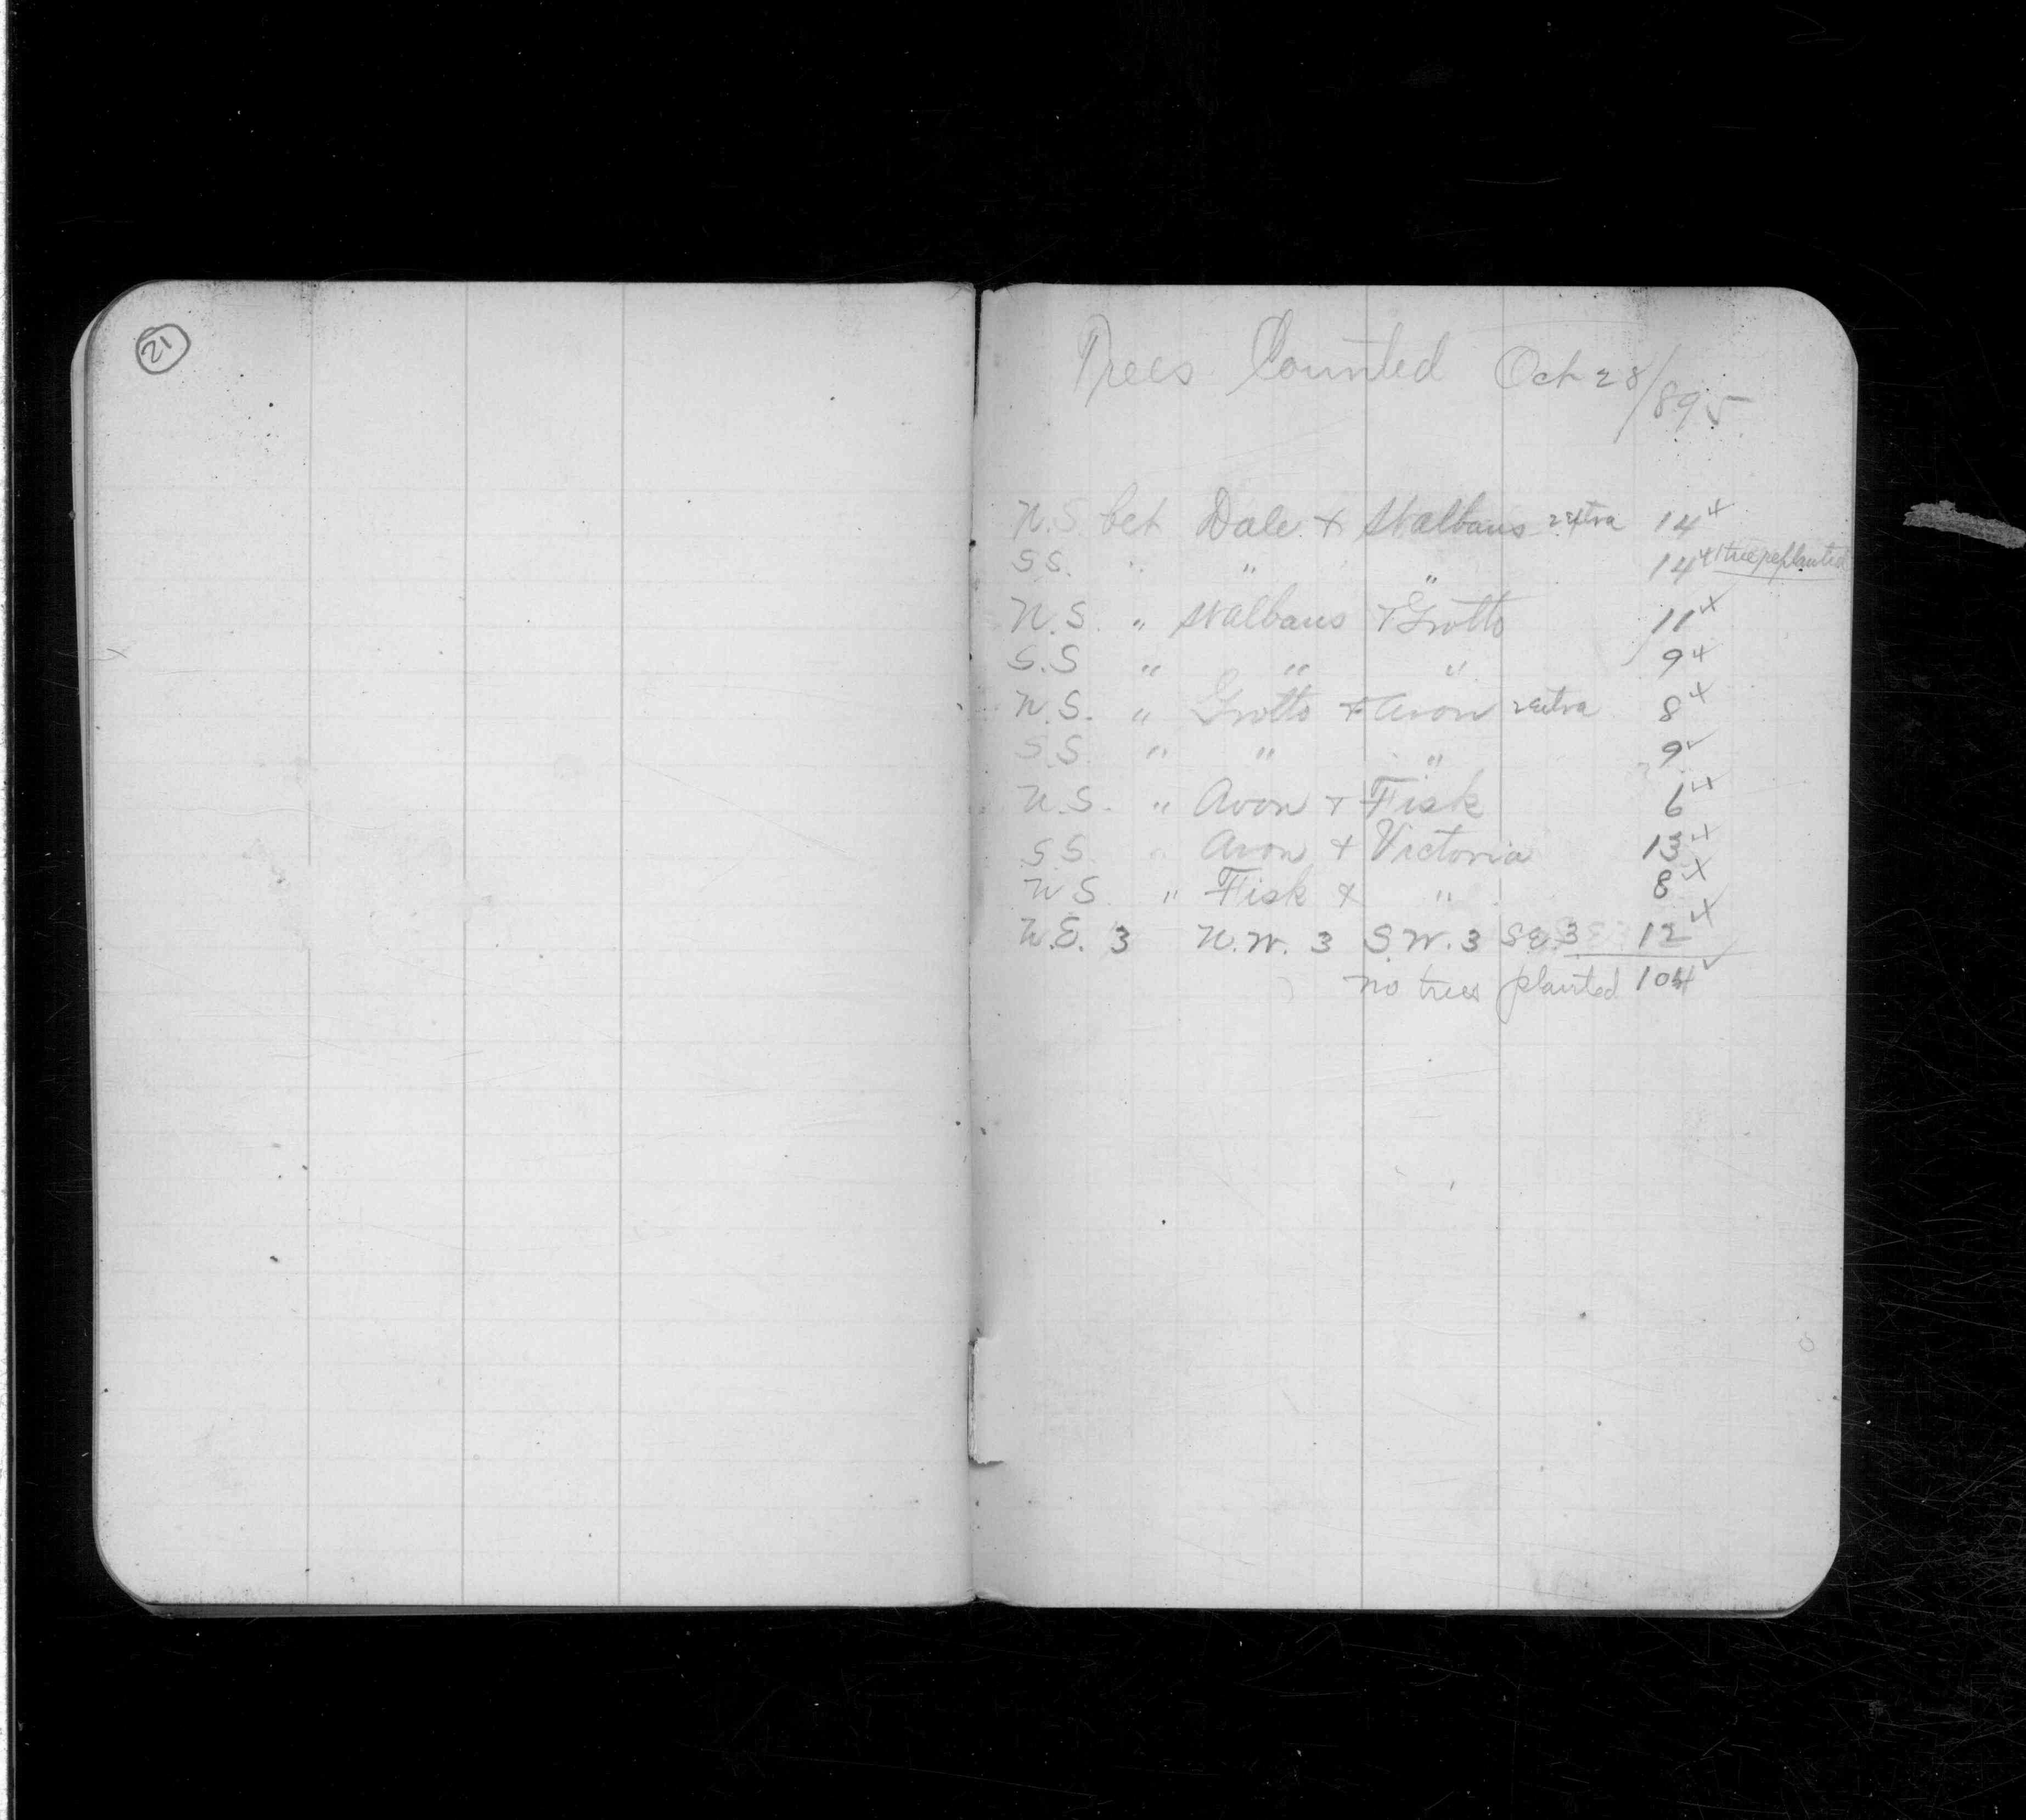 21
Trees Counted Oct 28/895
N.S. bet Dale + St Albans 2 extra 14 x
S S. " " " 14 x 1 tree replanted
N.S. " St Albans + Grotto 11 x
S.S " " " 9 x
N.S. " Grotto + Avon 2 extra 8 x
S.S. " " " 9 ✓
N.S. " Avon + Fisk 6 x
S S. " Avon + Victoria 13 x
N S. " Fisk + " 8 x
N.E. 3 N.W. 3 S.W. 3 S.E. 3 12 x
no trees planted 104 ✓